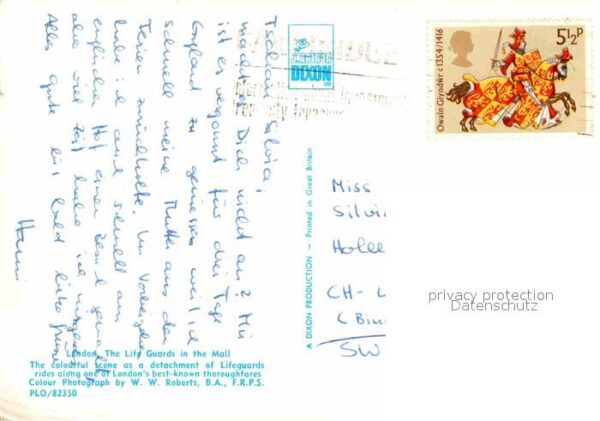 Tschau Silvia,
macht Dich nicht an? Mir
ist es vergönnt für drei Tage
England zu geniessen weil ich
schnell meine Mutter aus den
Ferien zurückholte. Im Vorbeigehen
habe ich auch schnell am
englischen Hof einen Besuch gemacht
aber viel Zeit habe ich
Alles gute bis bald liebe Grüsse
Hansi
DIXON
Owain Glyndŵr c1354/1416
5½P
Miss
Silvi
CH-
SW
privacy protection
Datenschutz
A DIXON PRODUCTION — Printed in Great Britain
London, The Life Guards in the Mall
The colourful scene as a detachment of Lifeguards
rides along one of London's best-known thoroughfares
Colour Photograph by W. W. Roberts, B.A., F.R.P.S.
PLO/82350